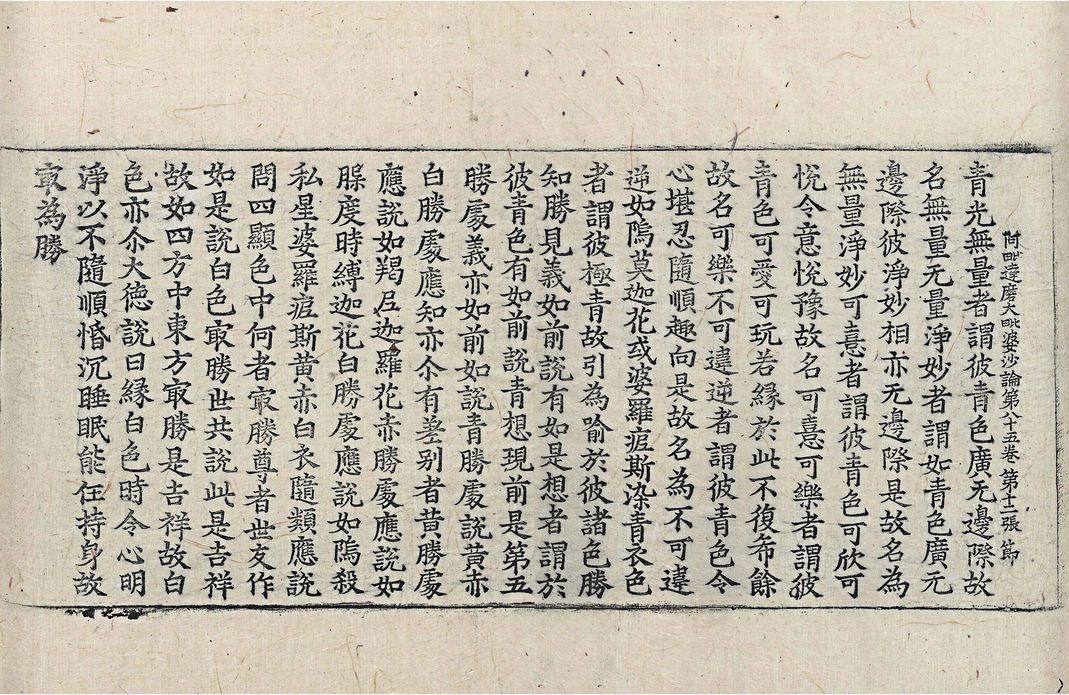 阿毗達磨大毗婆沙論第八十五卷 第十二張 節
青光無量者謂彼青色廣无邊際故
名無量无量淨妙者謂如青色廣无
邊際彼淨妙相亦无邊際是故名為
無量淨妙可憙者謂彼青色可欣可
悅令意悅豫故名可憙可樂者謂彼
青色可愛可玩若緣於此不復希餘
故名可樂不可違逆者謂彼青色令
心堪忍隨順趣向是故名為不可違
逆如鄔莫迦花或婆羅痆斯染青衣色
者謂彼極青故引為喻於彼諸色勝
知勝見義如前說有如是想者謂於
彼青色有如前說青想現前是第五
勝處義亦如前如說青勝處說黃赤
白勝處應知亦尒有差別者黃勝處
應說如羯尼迦羅花赤勝處應說如
縛度時縛迦花白勝處應說如鄔殺
私星婆羅痆斯黃赤白衣隨類應說
問四顯色中何者㝡勝尊者世友作
如是說白色㝡勝世共說此是吉祥
故如四方中東方㝡勝是吉祥故白
色亦尒大德說曰緣白色時令心明
淨以不隨順惛沉睡眠能任持身故
㝡為勝